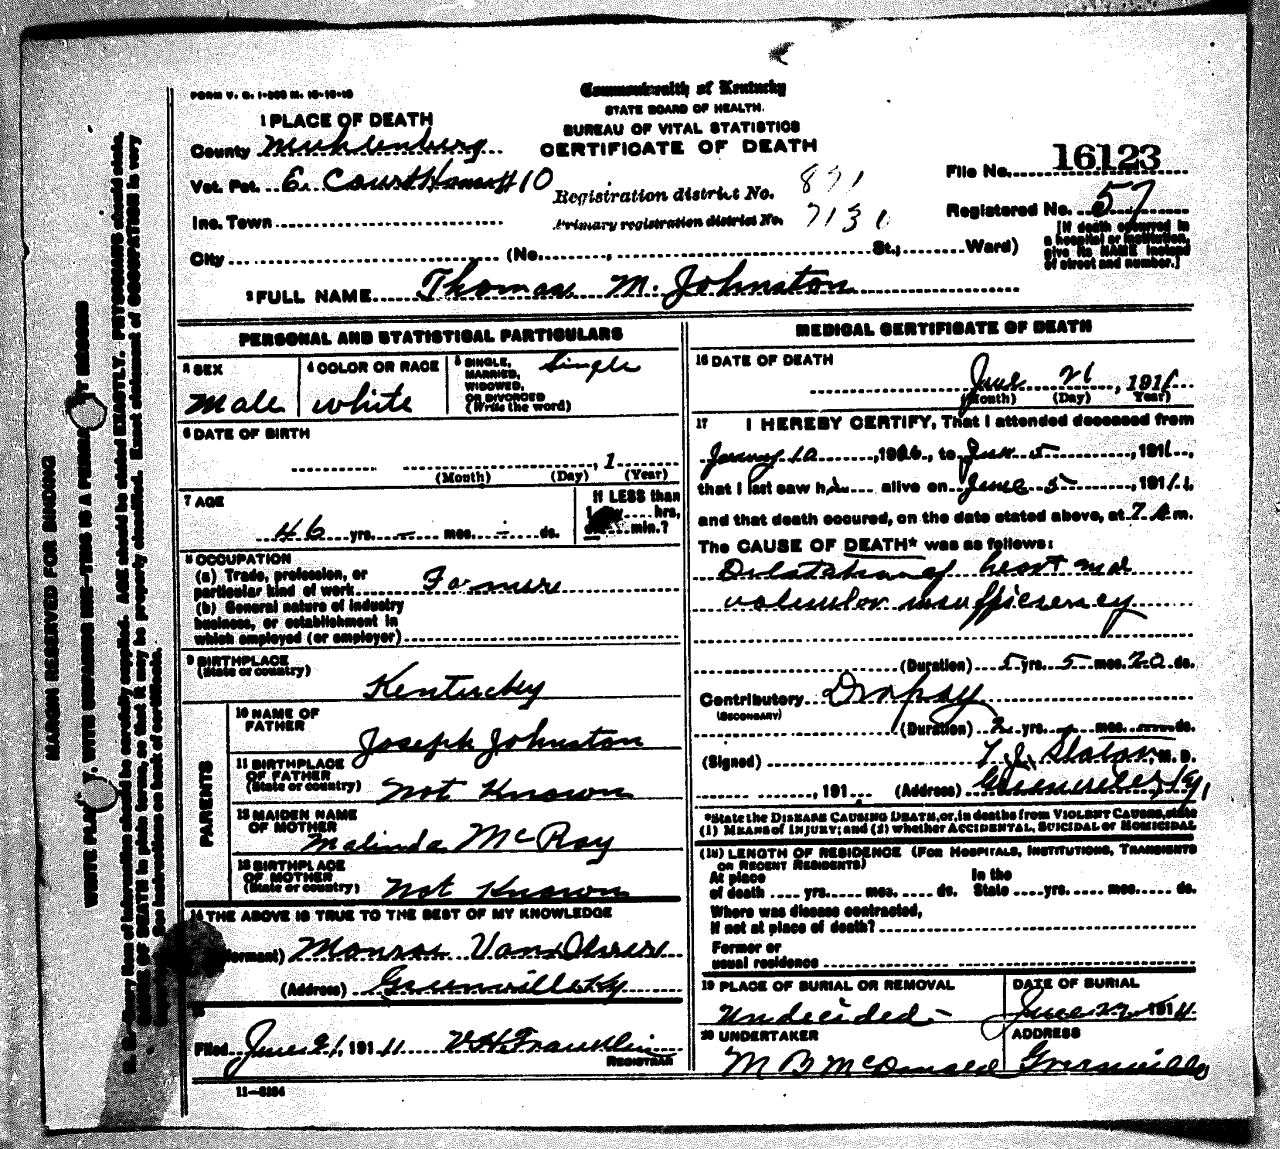 FORM V. S. 1-
Commonwealth of Kentucky
STATE BOARD OF HEALTH.
BUREAU OF VITAL STATISTICS
CERTIFICATE OF DEATH
1 PLACE OF DEATH
County Muhlenberg
Vot. Pct. E. Court House # 10
Inc. Town
City (No. , St.; Ward)
Registration district No. 871
Primary registration district No. 713
File No. 16123
Registered No. 57
[If death occurred in
a hospital or institution,
give its NAME instead
of street and number.]
2 FULL NAME Thomas M. Johnston
PERSONAL AND STATISTICAL PARTICULARS
3 SEX
Male
4 COLOR OR RACE
white
5 SINGLE,
MARRIED,
WIDOWED,
OR DIVORCED
(Write the word)
Single
6 DATE OF BIRTH
, 1
(Month) (Day) (Year)
7 AGE
46 yrs. — mos. — ds.
If LESS than
1 day hrs,
min.?
8 OCCUPATION
(a) Trade, profession, or
particular kind of work Farmer
(b) General nature of industry
business, or establishment in
which employed (or employer)
9 BIRTHPLACE
(State or country)
Kentucky
PARENTS
10 NAME OF
FATHER
Joseph Johnston
11 BIRTHPLACE
OF FATHER
(State or country)
Not Known
12 MAIDEN NAME
OF MOTHER
Malinda McRoy
13 BIRTHPLACE
OF MOTHER
(State or country)
Not Known
14 THE ABOVE IS TRUE TO THE BEST OF MY KNOWLEDGE
formant) Monroe
(Address) Greenville Ky
15
Filed June 21, 1911 V.H. Franklin
REGISTRAR
11—
MEDICAL CERTIFICATE OF DEATH
16 DATE OF DEATH
June 21, 1911
(Month) (Day) Year)
17 I HEREBY CERTIFY, That I attended deceased from
10, 1906, to June 5, 1911,
that I last saw h alive on June 5, 1911,
and that death occured, on the date stated above, at 7 A m.
The CAUSE OF DEATH* was as follows:
Dilatation of heart and
valvular insufficiency
(Duration) 5 yrs. 5 mos. 20 ds.
Contributory Dropsy
(SECONDARY)
(Duration) 2 yrs. mos. ds.
(Signed) T. J. Slaton, M. D.
, 191 (Address) Greenville, Ky
*State the DISEASE CAUSING DEATH, or, in deaths from VIOLENT CAUSES, state
(1) MEANS of INJURY; and (2) whether ACCIDENTAL, SUICIDAL or HOMICIDAL
(18) LENGTH OF RESIDENCE (FOR HOSPITALS, INSTITUTIONS, TRANSIENTS
OR RECENT RESIDENTS)
At place In the
of death yrs. mos. ds. State yrs. mos. ds.
Where was disease contracted,
if not at place of death?
Former or
usual residence
19 PLACE OF BURIAL OR REMOVAL
Undecided -
DATE OF BURIAL
June 22 1911
20 UNDERTAKER
M B McDonald
ADDRESS
Greenville
MARGIN RESERVED FOR BINDING
WRITE PLA WITH UNFADING INK—THIS IS A PERMA T RECORD
N. B.—Every item of information should be carefully supplied. AGE should be stated EXACTLY. PHYSICIANS should state
CAUSE OF DEATH in plain terms, so that it may be properly classified. Exact statement of OCCUPATION is very
important. See instructions on back of certificate.